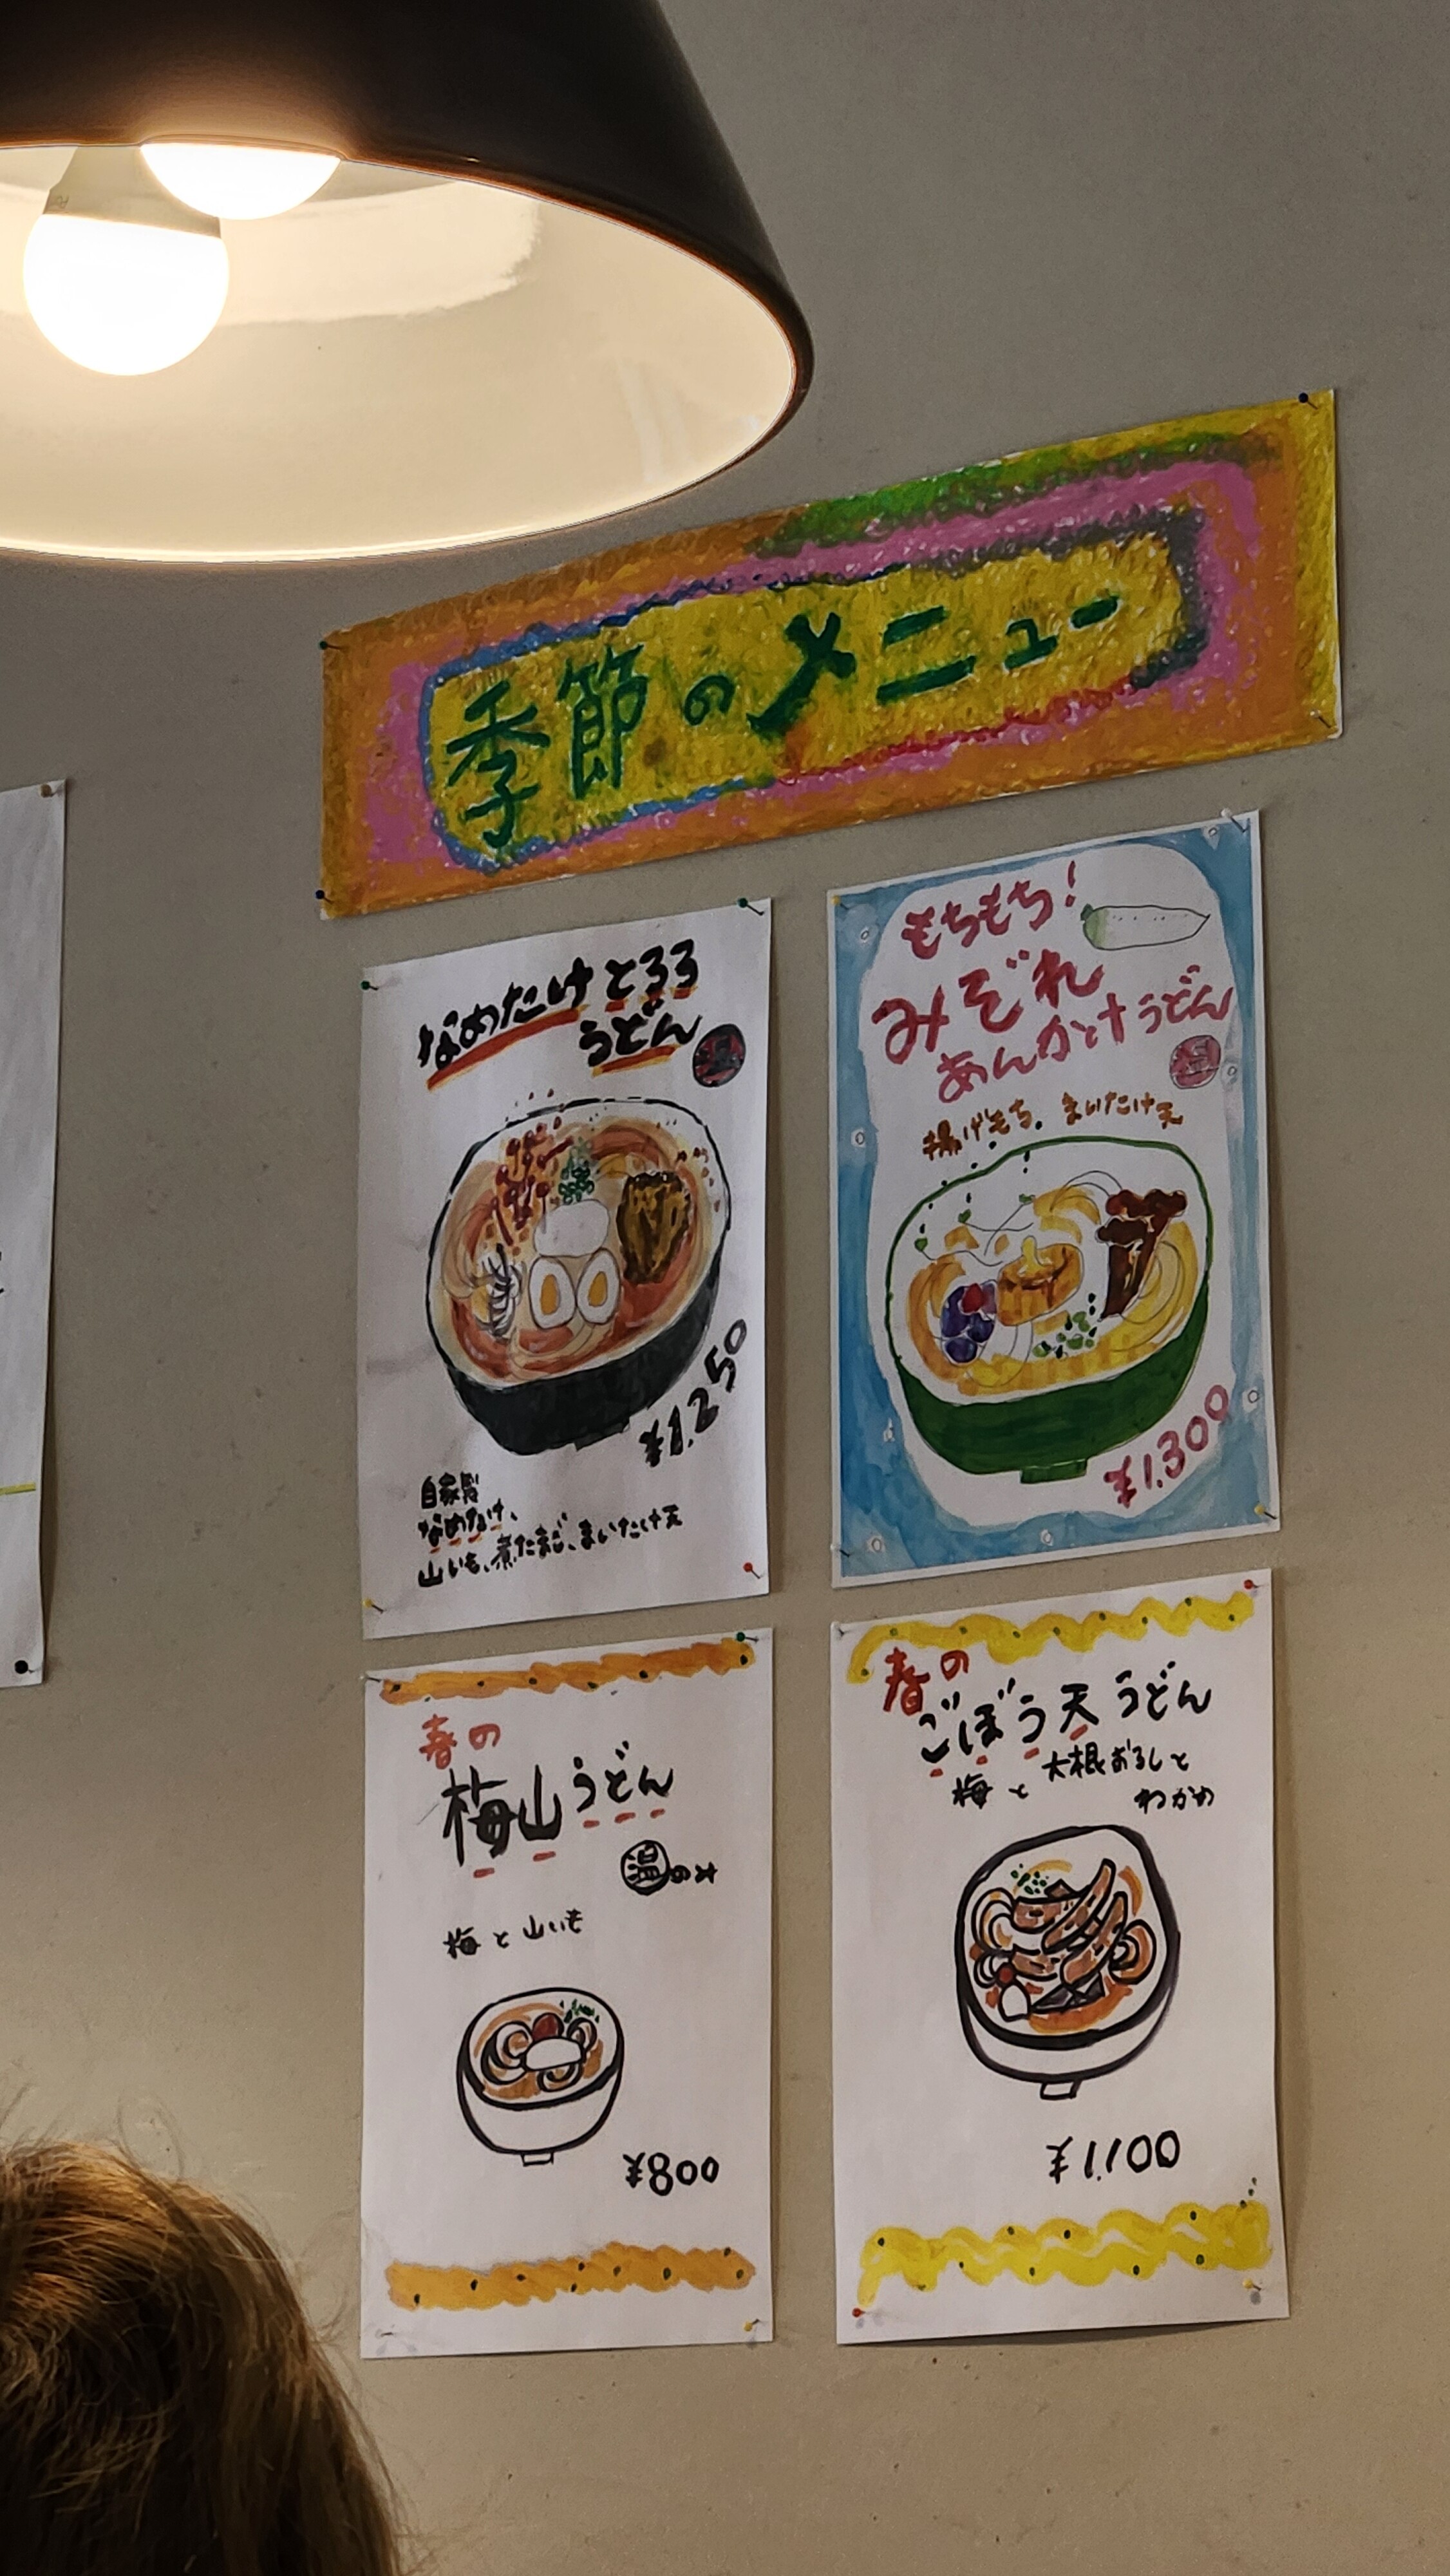 季節のメニュー
なめたけとろろ
うどん
温
¥1,250
自家製
なめたけ、
山いも、煮たまご、まいたけ天
もちもち!
みぞれ
あんかけうどん
温
揚げもち、まいたけ天
¥1,300
春の
梅山うどん
温のみ
梅と山いも
¥800
春の
ごぼう天うどん
梅と大根おろしと
わかめ
¥1,100